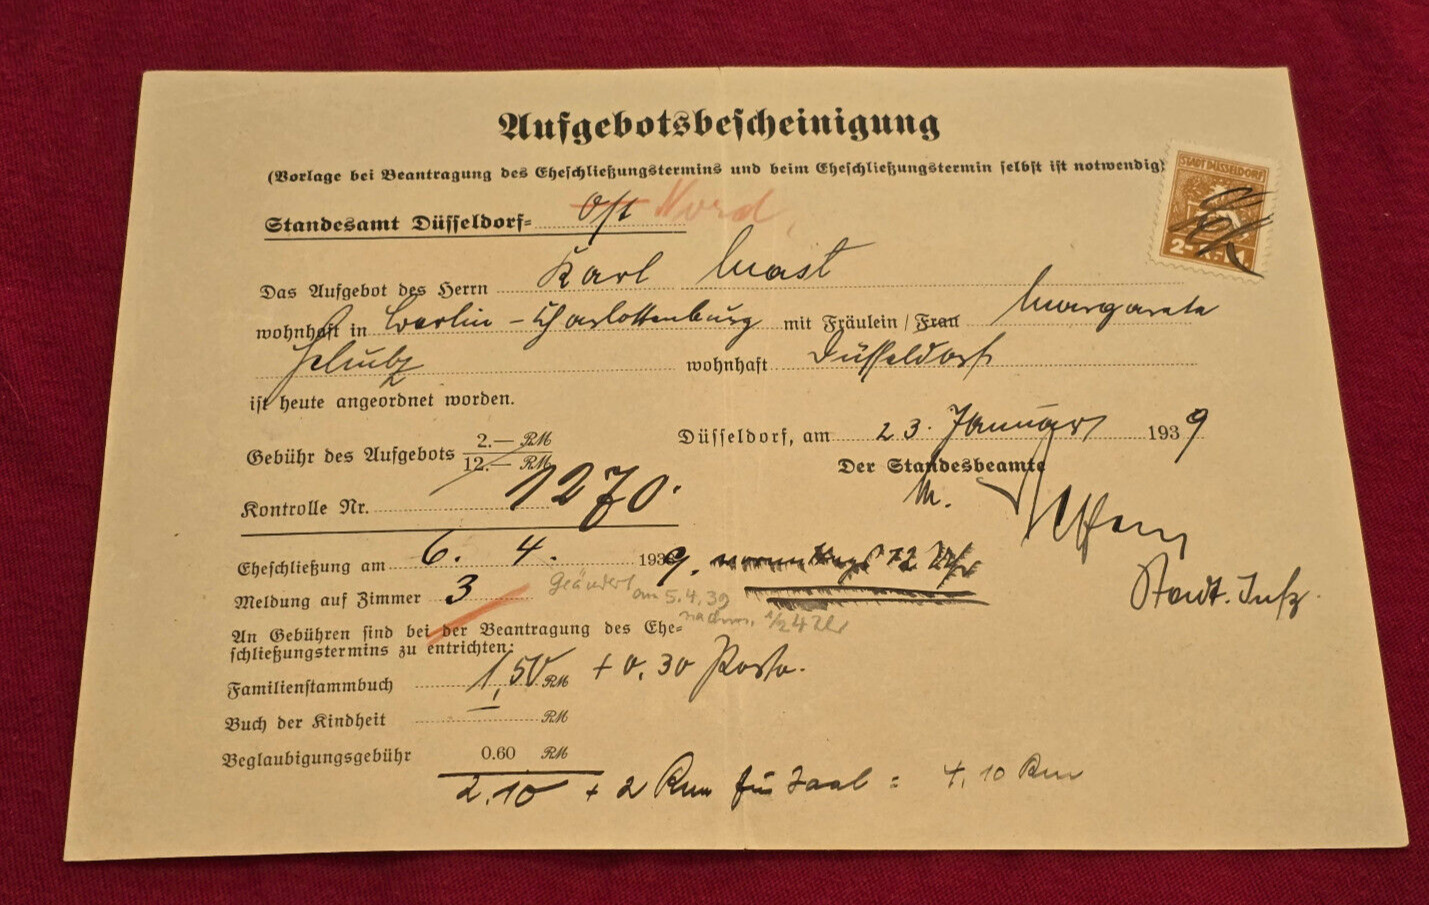 Aufgebotsbescheinigung
(Vorlage bei Beantragung des Eheschließungstermins und beim Eheschließungstermin selbst ist notwendig)
STADT DÜSSELDORF
Standesamt Düsseldorf= Ost Nord
Das Aufgebot des Herrn Karl Mast
wohnhaft in Berlin - Charlottenburg mit Fräulein / Frau Margareta
wohnhaft Düsseldorf
ist heute angeordnet worden.
Gebühr des Aufgebots 2.— RM
12.— RM
Düsseldorf, am 23. Januar 1939
Der Standesbeamte
Kontrolle Nr. 1270.
Stadt. Insp.
Eheschließung am 6. 4. 1939. vormittags 12 Uhr
Meldung auf Zimmer 3 geändert am 5.4.39
nachm. 1/2 4 Uhr
An Gebühren sind bei der Beantragung des Ehe=
schließungstermins zu entrichten:
Familienstammbuch 1,50 RM + 0,30 Porto.
Buch der Kindheit RM
Beglaubigungsgebühr 0.60 RM
2,10 + 2 Rm für Saal = 4,10 Rm